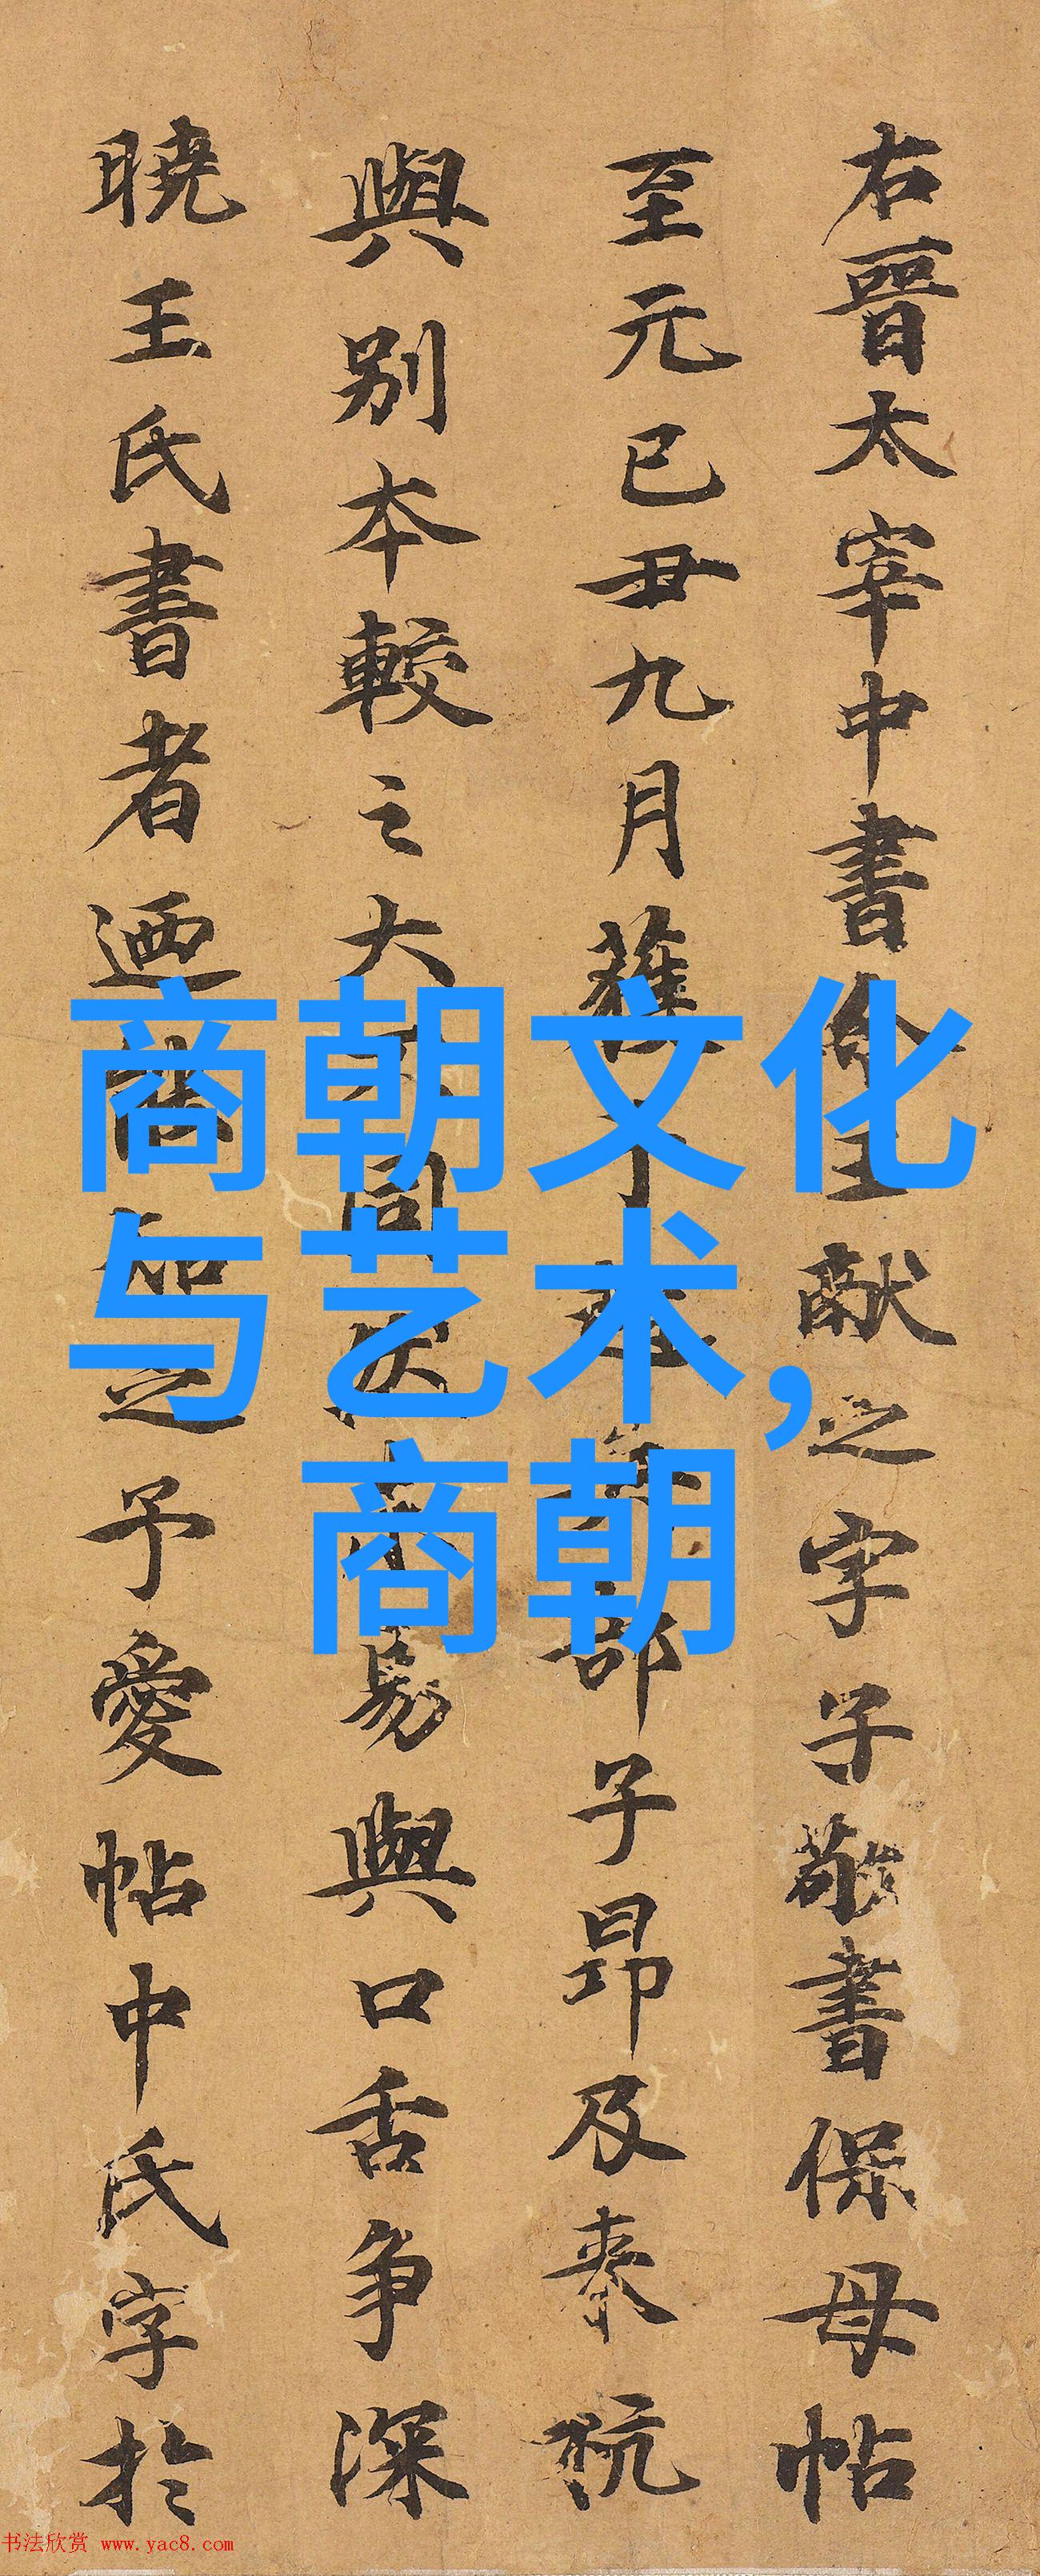 右晉太宰中書令王獻之字子敬書保母帖
至元已丑九月獲于
部子昂及泰杭
與別本較之大
同
易與口舌争深
曉王氏書者迺
知之予愛帖中氏字於
商朝文化
与艺术,
商朝
书法欣赏 www.yac8.com